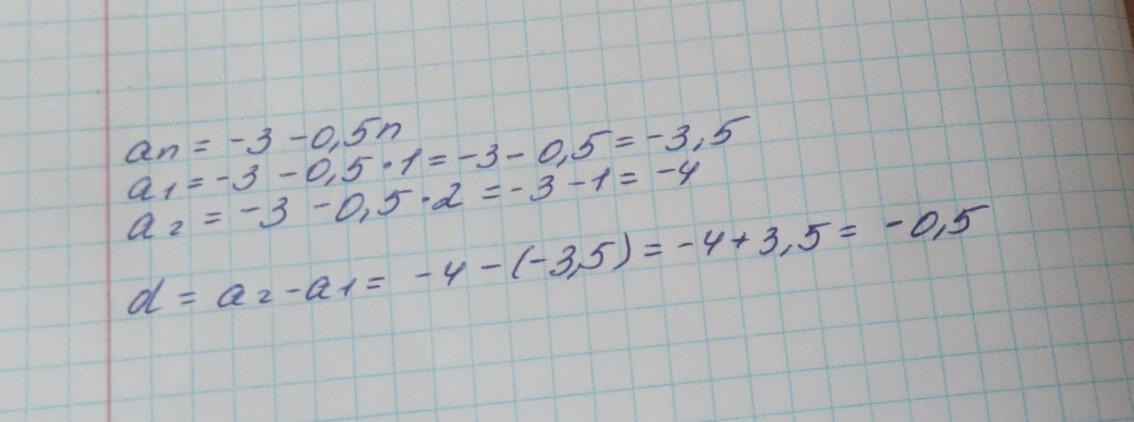 an = -3 - 0,5n
a1 = -3 - 0,5 · 1 = -3 - 0,5 = -3,5
a2 = -3 - 0,5 · 2 = -3 - 1 = -4
d = a2 - a1 = -4 - (-3,5) = -4 + 3,5 = -0,5